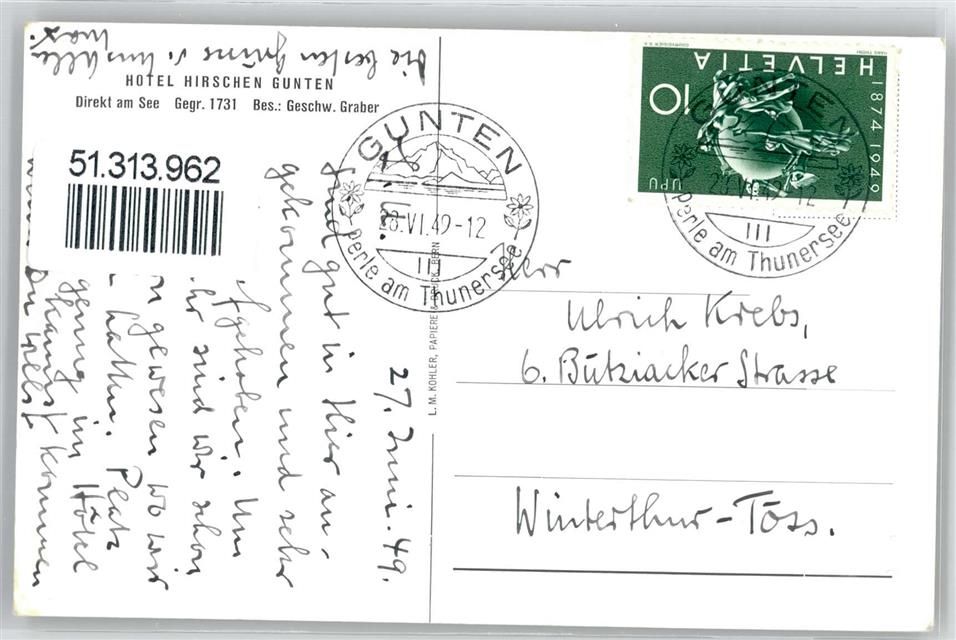 HOTEL HIRSCHEN GUNTEN
Direkt am See Gegr. 1731 Bes.: Geschw. Graber
51.313.962
27. Juni. 49.
Sind gut in Hier an-
gekommen und sehr
Um
sind wir schon
gewesen wo wir
hatten. Platz
genug im Hotel
kannst kommen
Du willst
die besten Grüsse
Max.
L. M. KOHLER, PAPIERE & DRUCK, BERN
GUNTEN
28.VI.49-12
III
Perle am Thunersee
HELVETIA
1874 1949
10
UPU
GUNTEN
VI.49-12
III
Perle am Thunersee
Herr
Ulrich Krebs,
6. Bütziacker Strasse
Winterthur-Töss.